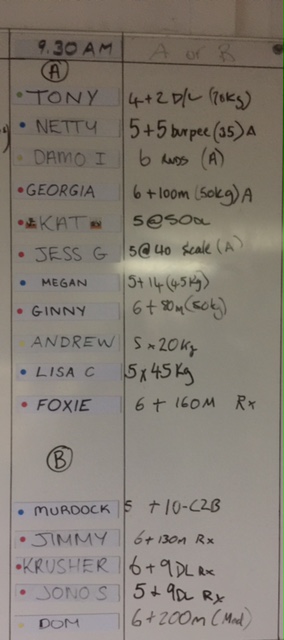 9.30 AM A or R
A
TONY 4+2 D/L (70kg)
NETTY 5+5 burpee (35) A
DAMO I 6 RNDS (A)
GEORGIA 6+100m (50kg) A
KAT 5@50
JESS G 5@40 Scale (A)
MEGAN 5+14 (45kg)
GINNY 6+80m (50kg)
ANDREW 5x20kg
LISA C 5x45kg
FOXIE 6+160M Rx
B
MURDOCK 5 +10-C2B
JIMMY 6+130m Rx
KRUSHER 6+9 DL Rx
JONO S 5+9DL Rx
DOM 6+200m (Mod)